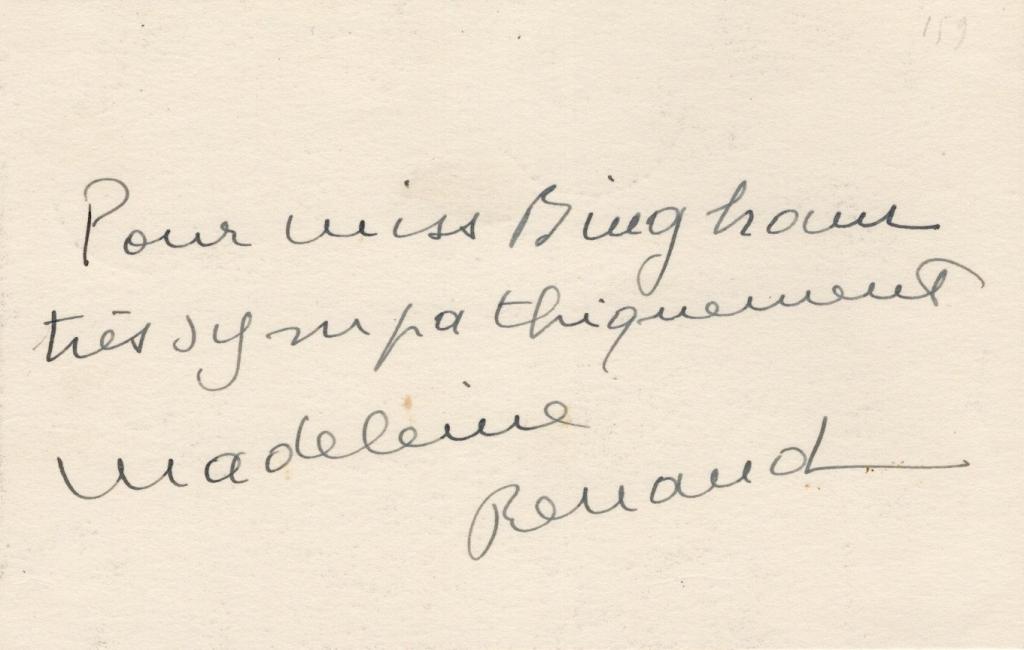 159
Pour miss Bingham
très sympathiquement
Madeleine
Renaud